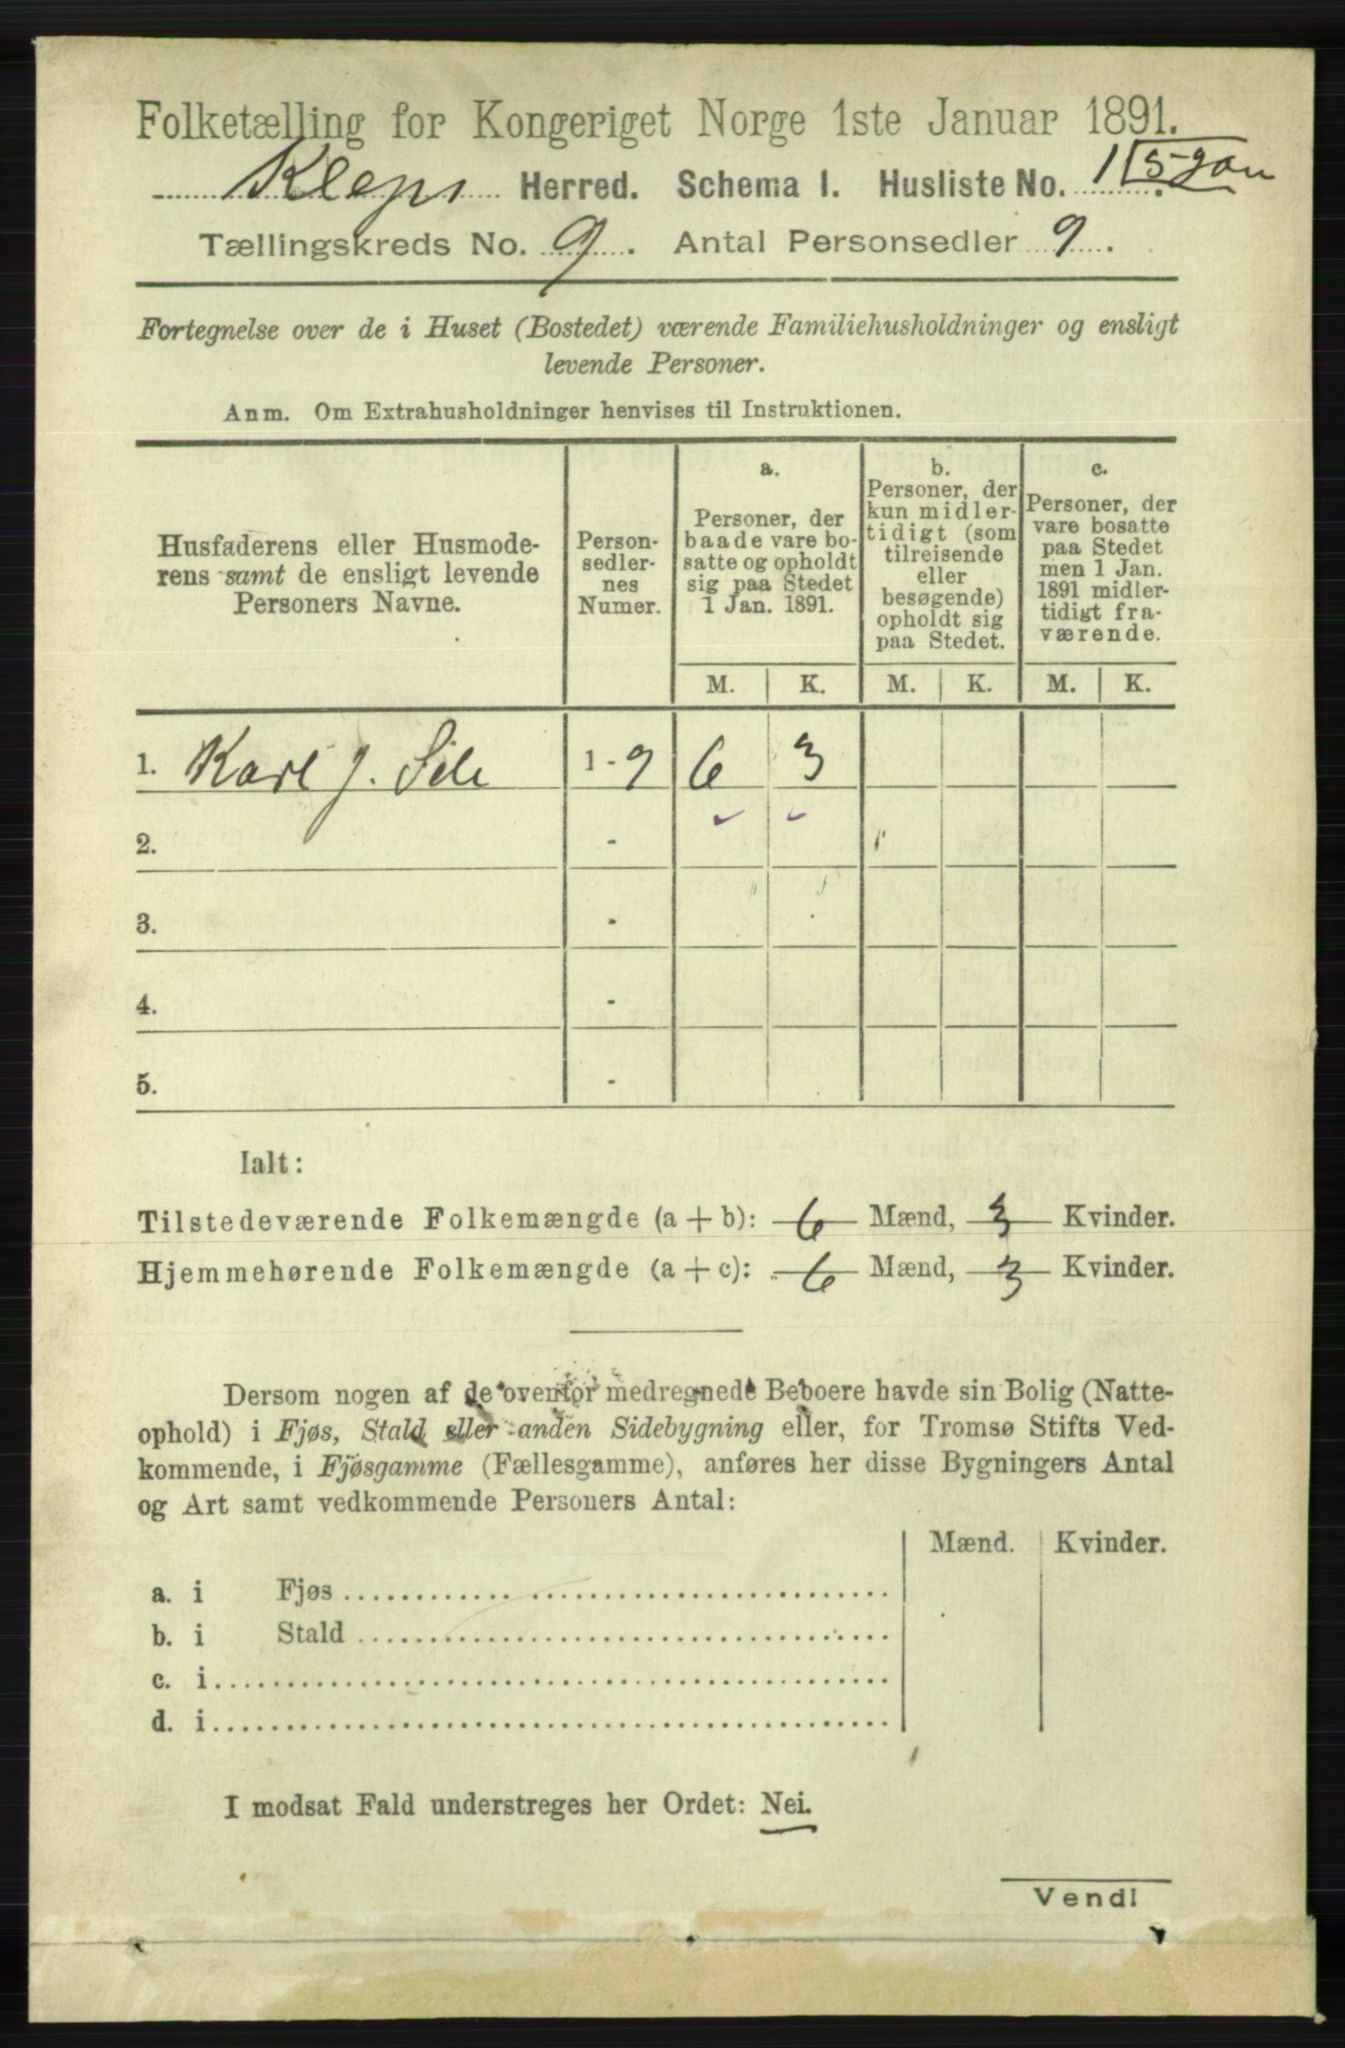 Folketælling for Kongeriget Norge 1ste Januar 1891.
Klepp Herred. Schema I. Husliste No. 1
Tællingskreds No. 9. Antal Personsedler 9.
Fortegnelse over de i Huset (Bostedet) værende Familiehusholdninger og ensligt
levende Personer.
Anm. Om Extrahusholdninger henvises til Instruktionen.
Husfaderens eller Husmode-
rens samt de ensligt levende
Personers Navne.
Person-
sedler-
nes
Numer.
a.
Personer, der
baade vare bo-
satte og opholdt
sig paa Stedet
1 Jan. 1891.
b.
Personer, der
kun midler-
tidigt (som
tilreisende
eller
besøgende)
opholdt sig
paa Stedet.
c.
Personer, der
vare bosatte
paa Stedet
men 1 Jan.
1891 midler-
tidigt fra-
værende.
M. K. M. K. M. K.
1. Karl J. Sele 1-9 6 3
2. -
3. -
4. -
5. -
Ialt:
Tilstedeværende Folkemængde (a + b): 6 Mænd, 3 Kvinder.
Hjemmehørende Folkemængde (a + c): 6 Mænd, 3 Kvinder.
Dersom nogen af de ovenfor medregnede Beboere havde sin Bolig (Natte-
ophold) i Fjøs, Stald eller anden Sidebygning eller, for Tromsø Stifts Ved-
kommende, i Fjøsgamme (Fællesgamme), anføres her disse Bygningers Antal
og Art samt vedkommende Personers Antal:
Mænd. Kvinder.
a. i Fjøs
b. i Stald
c. i
d. i
I modsat Fald understreges her Ordet: Nei.
Vend!